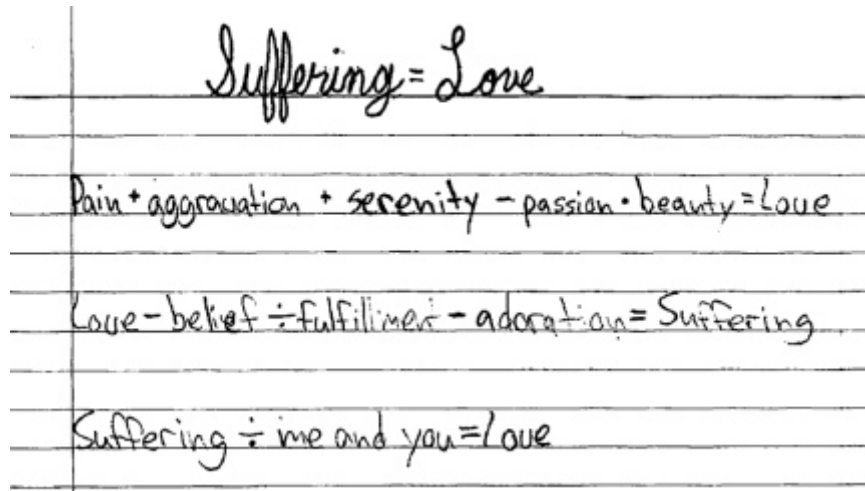 Suffering = Love
Pain + aggravation + serenity - passion · beauty = Love
Love - belief ÷ fulfillment - adoration = Suffering
Suffering ÷ me and you = Love